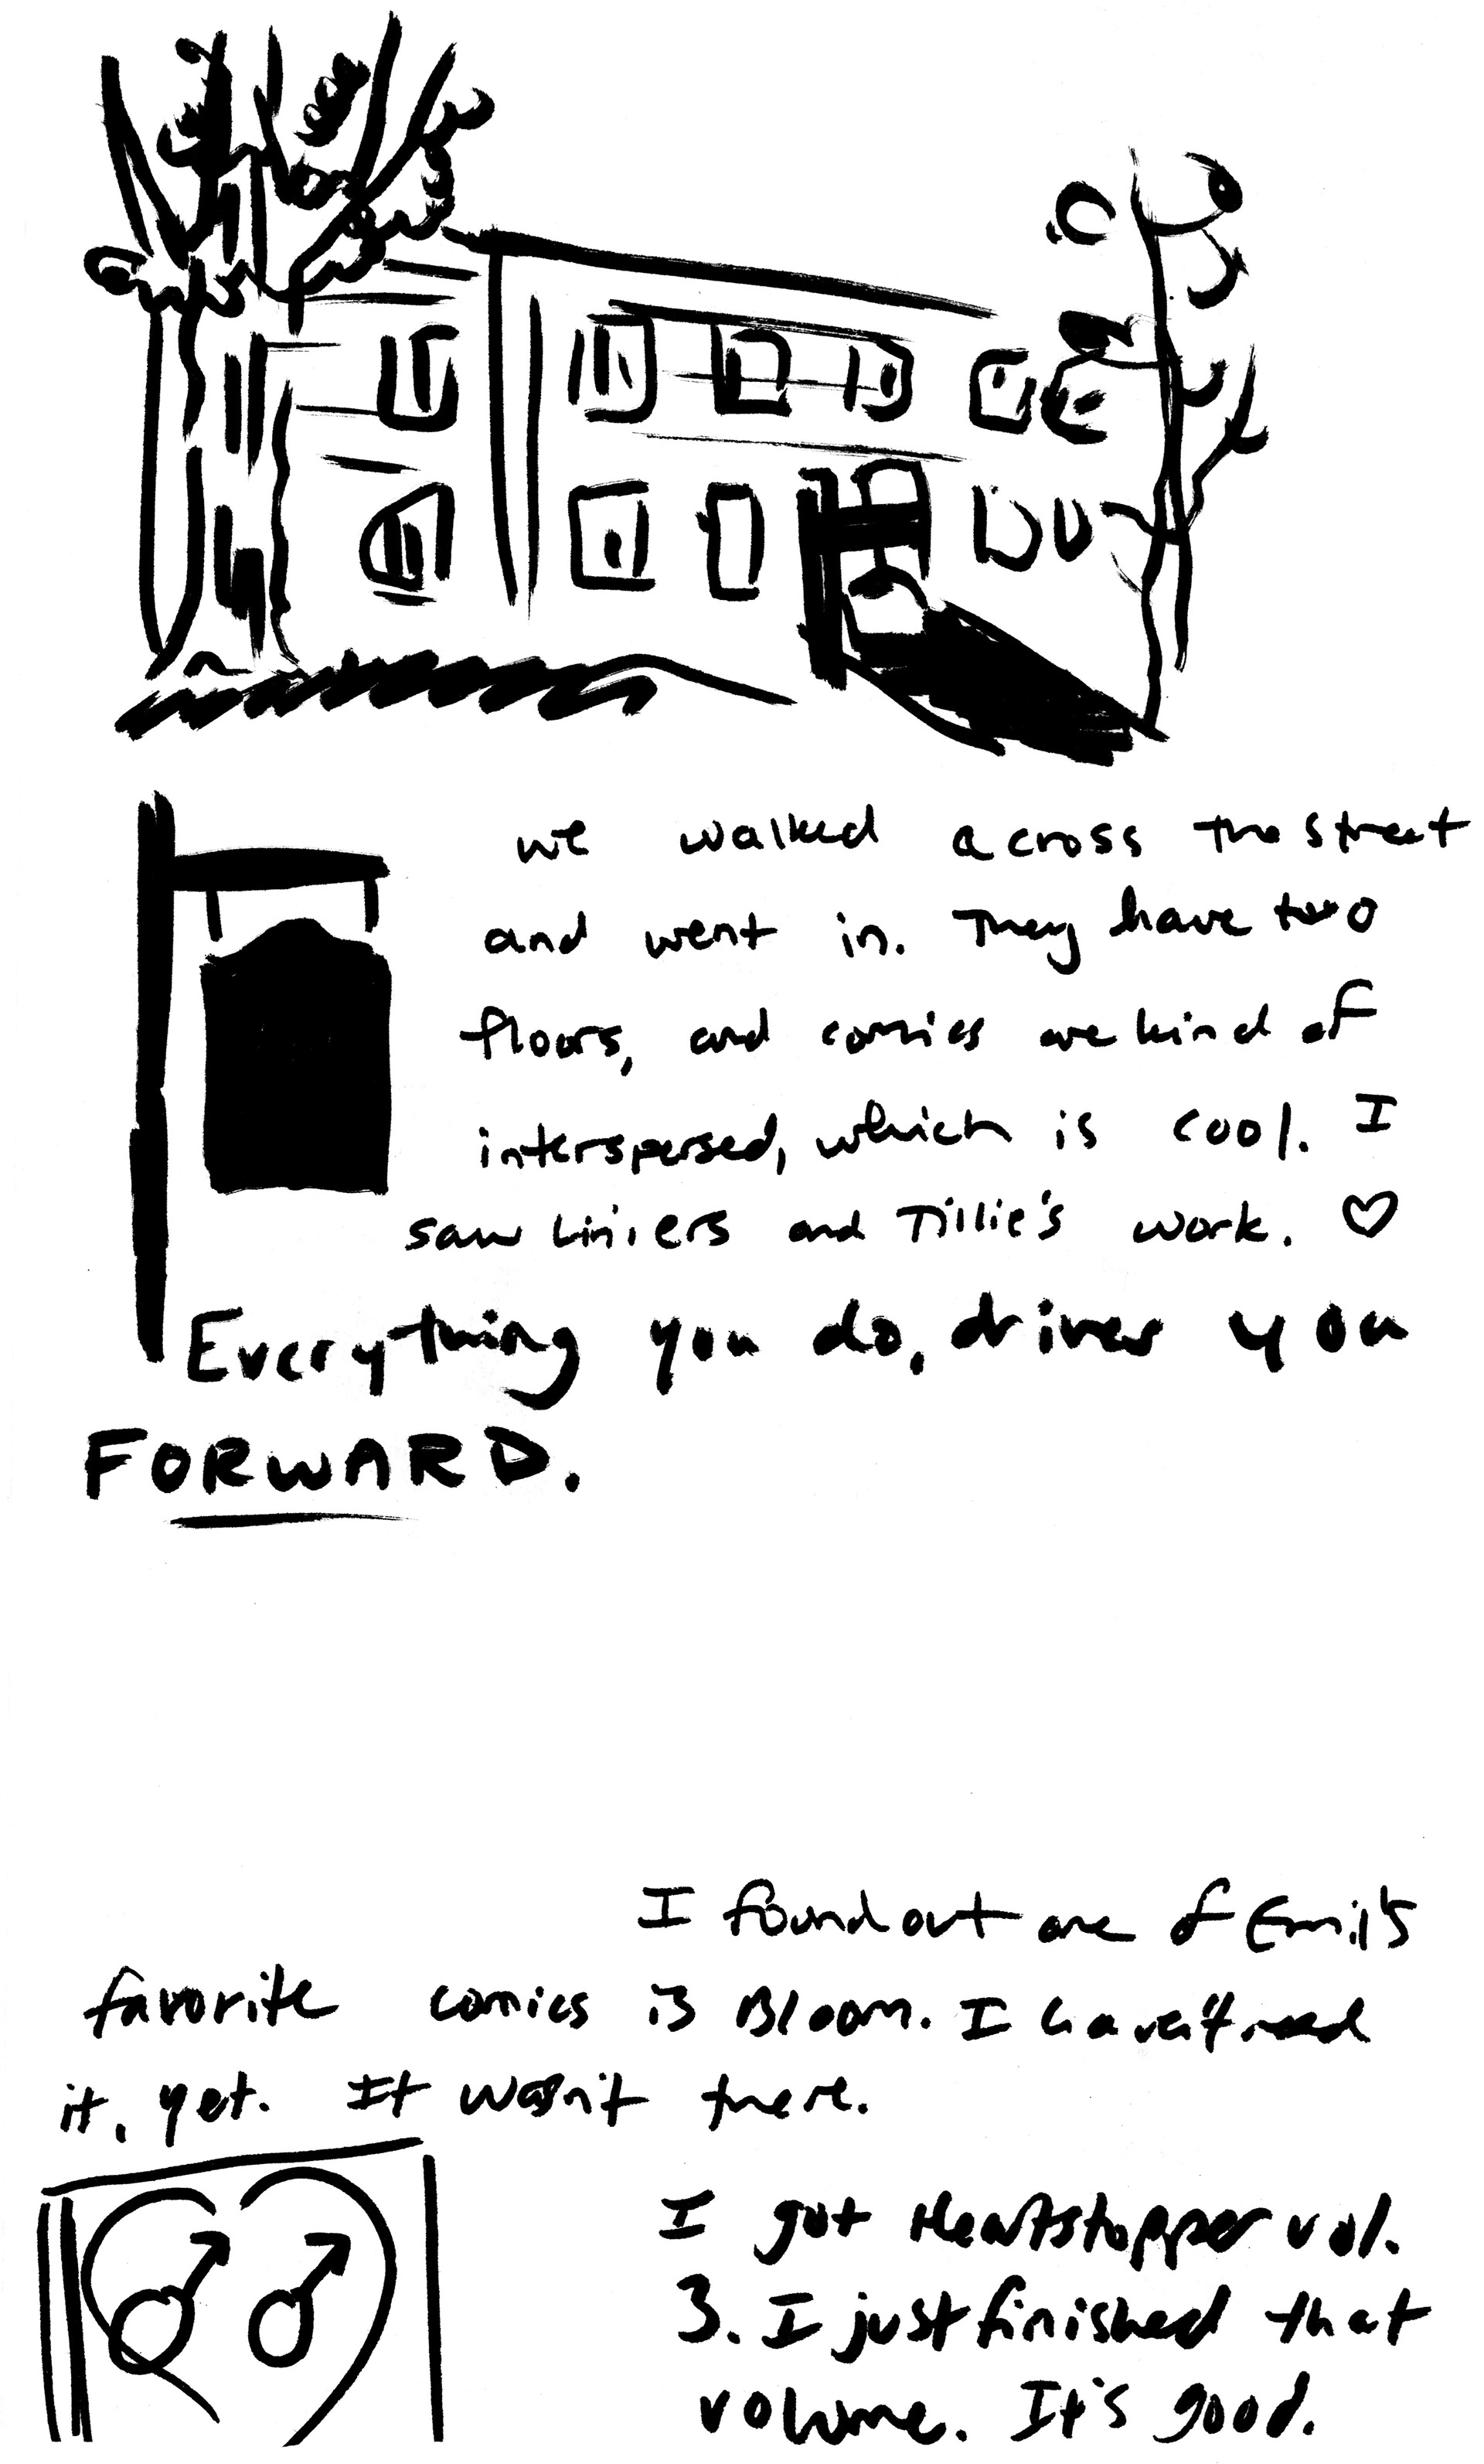 we walked across the street
and went in. They have two
floors, and comics are kind of
interspersed, which is cool. I
saw Liniers and Tillie's work. ♡
Everything you do, drives you
FORWARD.
I found out one of Emil's
favorite comics is Bloom. I haven't read
it, yet. It wasn't there.
I got Heartstopper vol.
3. I just finished that
volume. It's good.